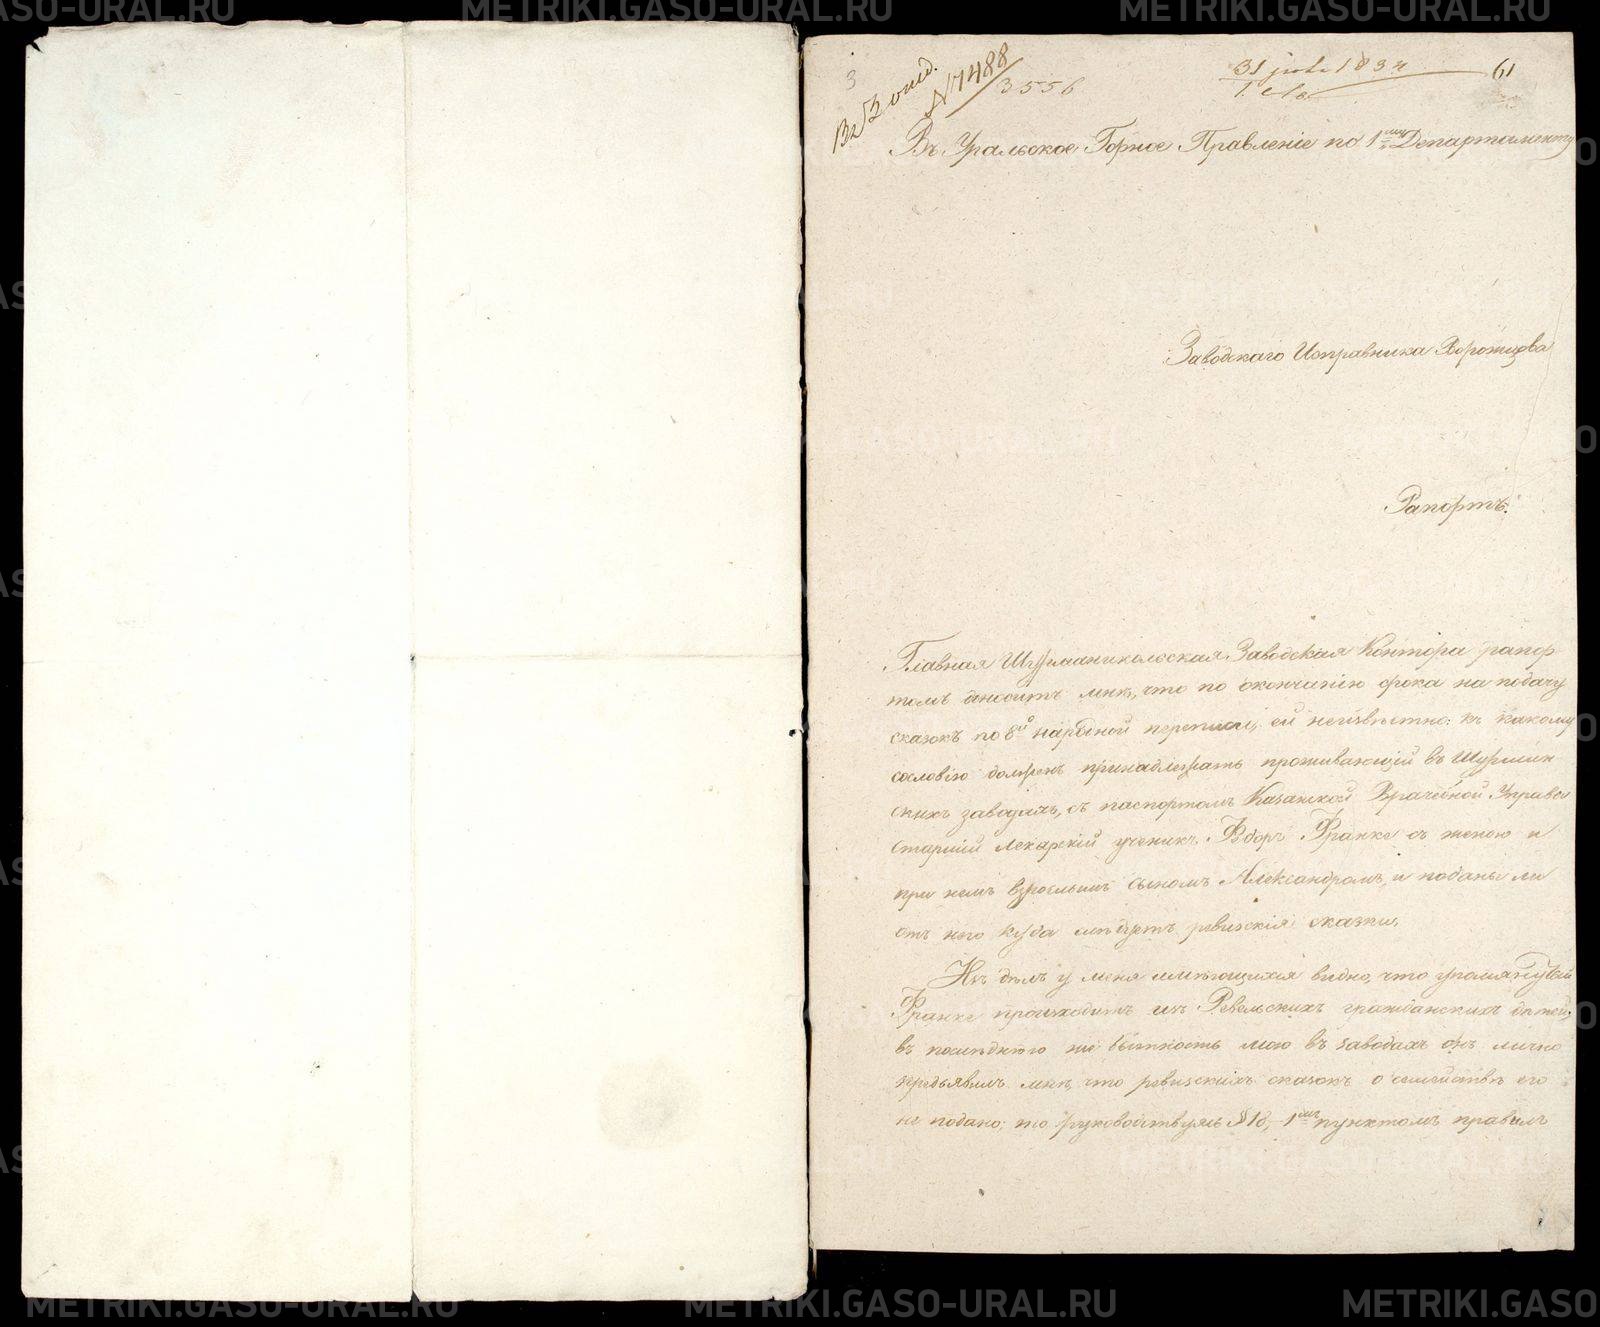 3
Въ 3 отд.
№ 7488
3556
31 1834
61
Въ Уральское Горное Правленіе по 1му Департаменту
Заводскаго Исправника Ворожцова
Рапортъ.
Главная Шурманикольская Заводская Контора рапор
томъ доноситъ мнѣ, что по окончанію срока на подачу
сказокъ по 8й народной переписи, ей неизвѣстно: къ какому
сословію долженъ принадлежать проживающій въ Шурмин
скихъ заводахъ, съ паспортомъ Казанской Врачебной Управы
старшій лекарскій ученикъ Ѳдоръ Франке съ женою и
при немъ взрослымъ сыномъ Александромъ, и поданы ли
отъ него куда слѣдуетъ ревизскія сказки.
Изъ дѣлъ у меня имѣющихся видно, что упомянутый
Франке происходитъ изъ Ревельскихъ гражданскихъ дѣтей,
въ послѣднюю же бытность мою въ заводахъ онъ лично
предъявилъ мнѣ, что ревизскихъ сказокъ о семействѣ его
не подано; то руководствуясь §18, 1мъ пунктомъ правилъ